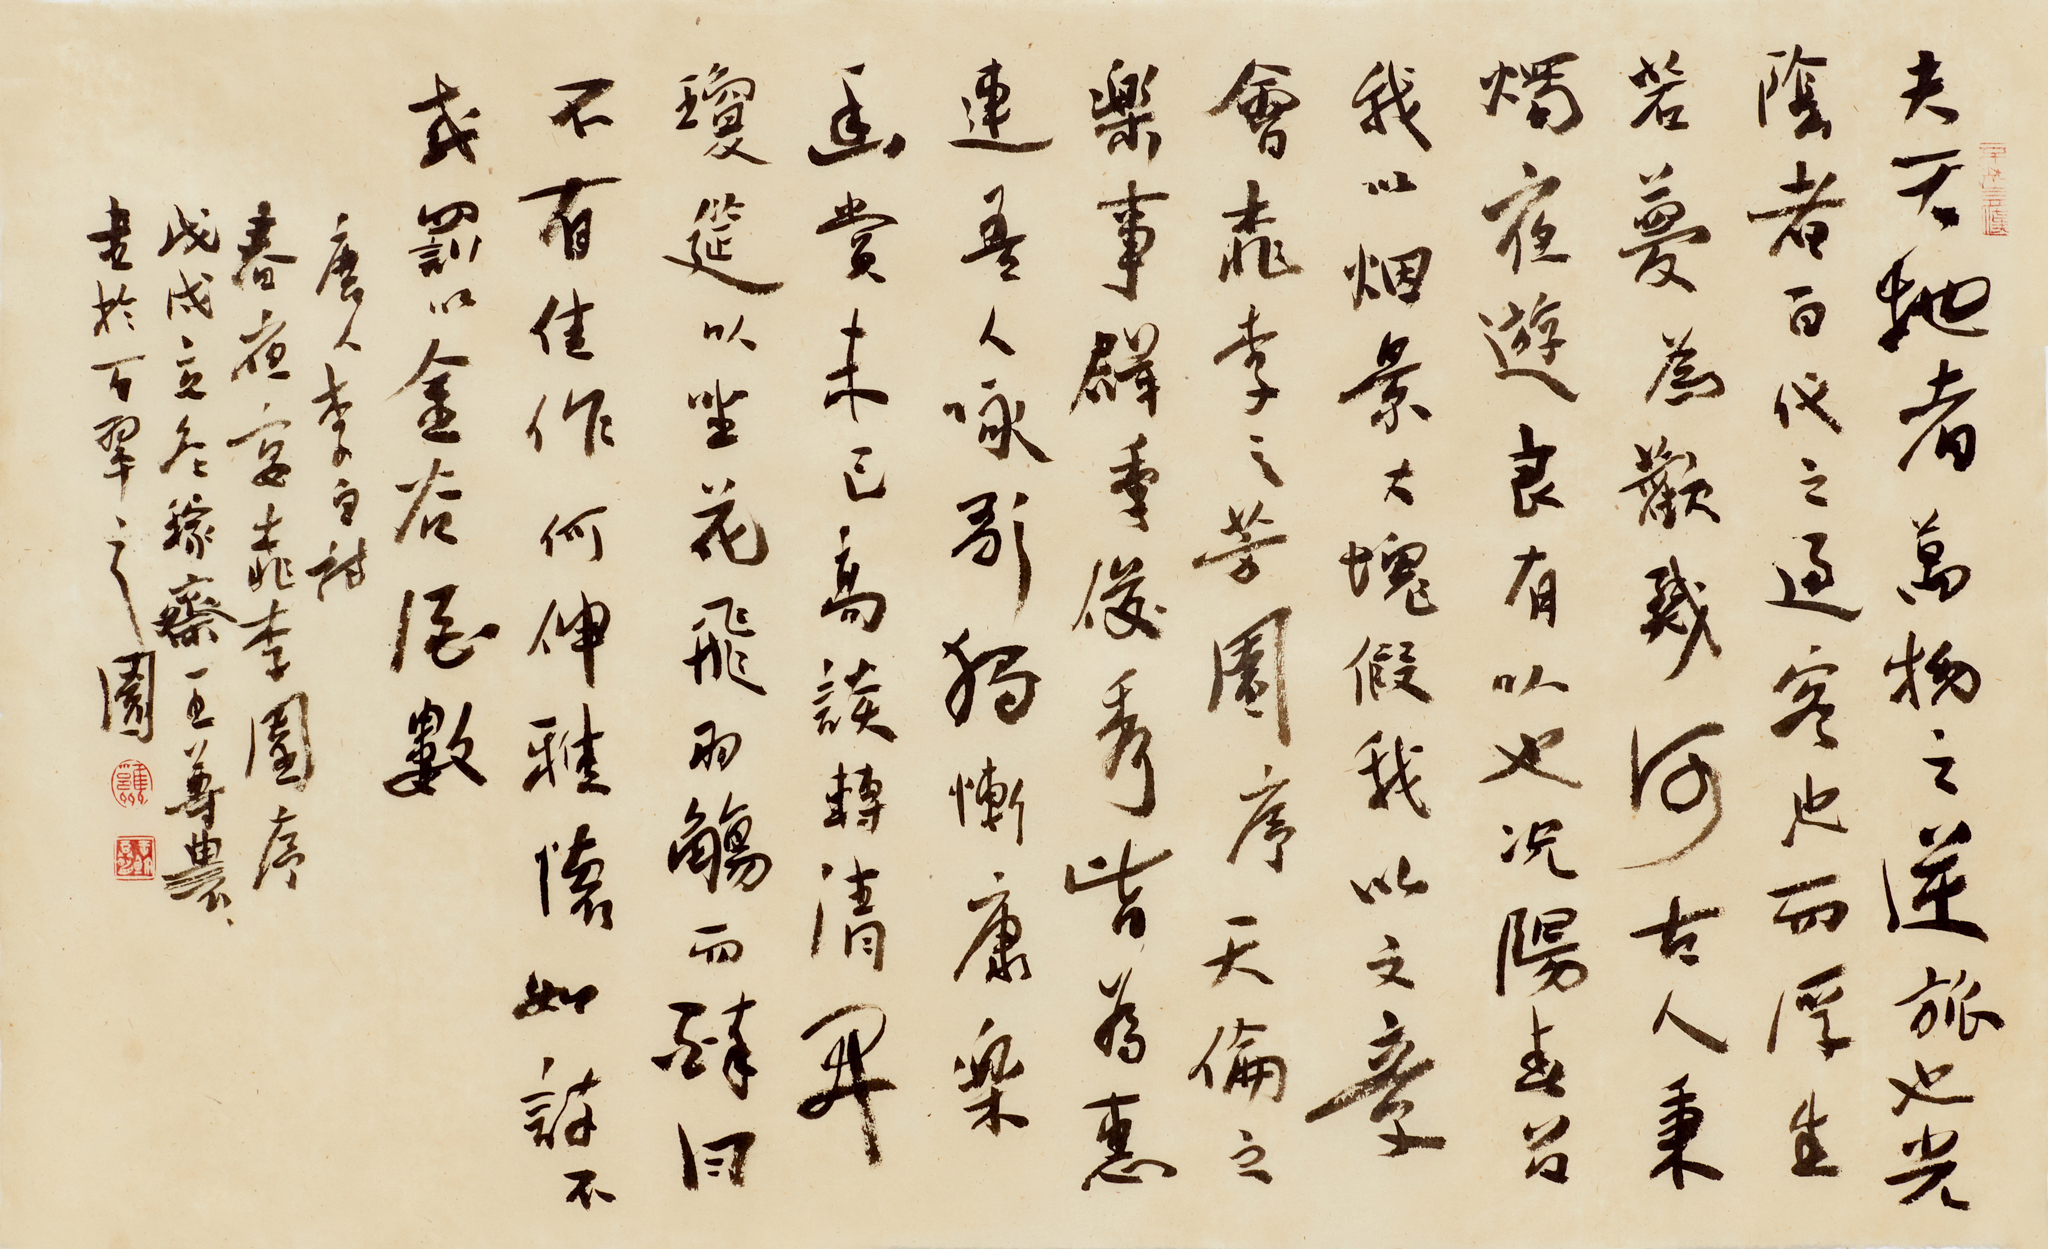 夫天地者萬物之逆旅也光
陰者百代之過客也而浮生
若夢為歡幾何古人秉
燭夜遊良有以也况陽春召
我以烟景大塊假我以文章
會桃李之芳園序天倫之
樂事群季俊秀皆為惠
連吾人咏歌獨慚康樂
幽賞未已高談轉清開
瓊筵以坐花飛羽觴而醉月
不有佳作何伸雅懷如詩不
成罰以金谷酒數
唐人李白詩
春夜宴桃李園序
戊戌立冬稼齋王尊農
書於百翠之園